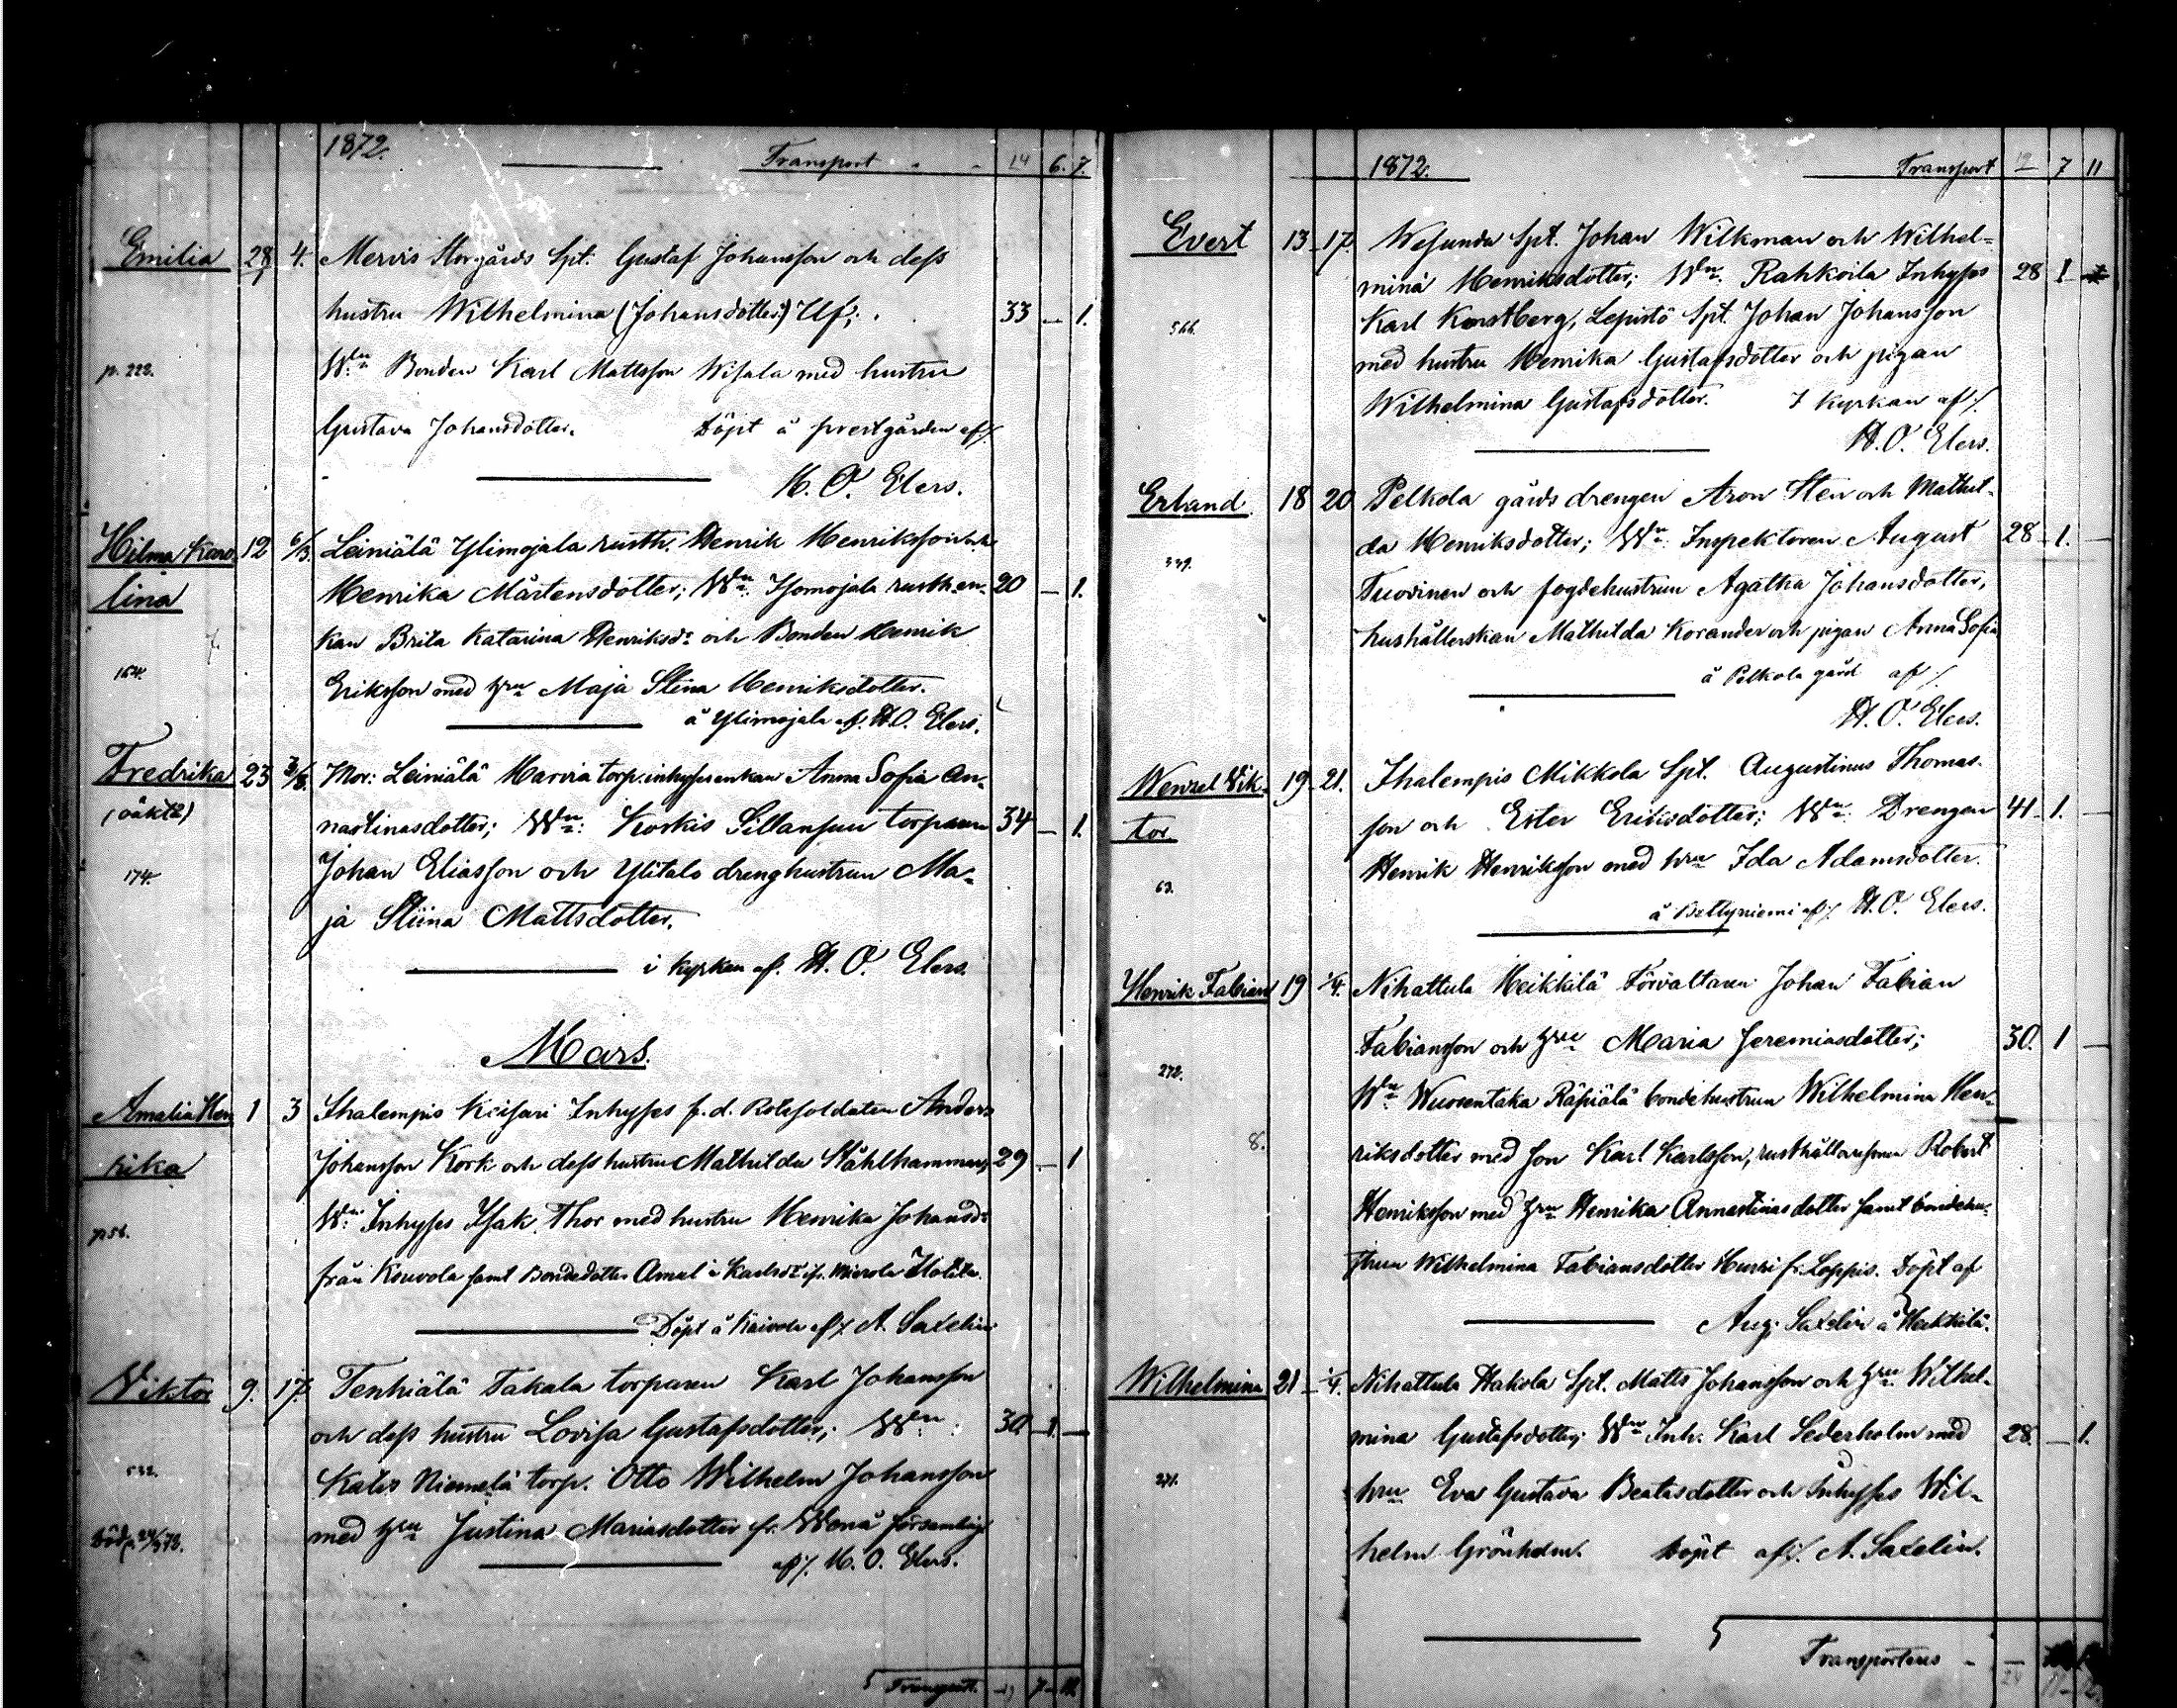 1872.
Transport - - 14 6. 7.
Emilia 28 4. Mervis Storgårds Spt. Gustaf Johansson och dess
hustru Wilhelmina (Johansdotter) Ulf; 33 - 1.
p. 222. Wn Bonden Karl Mattsson Wisala med hustru
Gustava Johansdotter. Döpt å prestgården af/.
H. O. Elers.
Hilma Karo- 12 6/3. Leiniälä Ylimojala rusth. Henrik Henriksson
lina Henrika Mårtensdotter; Wn. Isomojala rusth.en- 20 - 1.
kan Brita Katarina Henriksdr och Bonden Henrik
164. Eriksson med hru Maja Stina Henriksdotter.
å Ylimojala af. H.O. Elers.
Fredrika 23 3/3. Mor: Leiniälä Marvia torp. inhysesenkan Anna Sofia An-
(oäkta) nastinasdotter; Wn: Korkis Sillansuu torparen 34 - 1.
174. Johan Eliasson och Ylitalo drenghustrun Ma-
ja Stiina Mattsdotter.
i kyrkan af. H. O. Elers.
Mars.
Amalia Hen- 1 3 Ihalempis Keisari Inhyses f.d. Rotesoldaten Anders
rika Johansson Kork och dess hustru Mathilda Ståhlhammar; 29 - 1
Wn Inhyses Isak Thor med hustru Henrika Johansdr
p. 56. från Kouvola samt Bondedotter Amalia Karlsdr
Döpt å Kaivola af/. A. Saxelin
Viktor 9. 17. Tenhiälä Takala torparen Karl Johansson
och dess hustru Lovisa Gustafsdotter; Wn: 30 - 1. -
532. Katis Niemelä torp. Otto Wilhelm Johansson
Död med hru Justina Mariasdotter fr. Wånå församling
af/. H. O. Elers.
Transport. - 7 - 11.
1872. Transport 12 7 11
Evert 13 - 17. Wesunda Spt. Johan Wilkman och Wilhel-
mina Henriksdotter; Wn. Rahkoila Inhyses 28 1
566. Karl Korstberg, Lepistö Spt. Johan Johansson
med hustru Henrika Gustafsdotter och pigan
Wilhelmina Gustafsdotter. I kyrkan af/.
H. O. Elers.
Erland 18 20 Pelkola gårds drengen Aron Sten och Mathil-
da Henriksdotter; Wn. Inspektoren August 28 - 1. -
339. Tuovinen och fogdehustrun Agatha Johansdotter,
hushållerskan Mathilda Korander och pigan Anna Sofia
å Pelkola gård af/.
H. O. Elers.
Wenzel Vik- 19 - 21. Ihalempis Mikkola Spt. Augustinus Thomas-
tor. son och Ester Eriksdotter; Wn. Drengen 41 - 1. -
63. Henrik Henriksson med hru Ida Adamsdotter.
å Bettyniemi af/. H. O. Elers.
Henrik Fabian 19 1/4. Nihattula Heikkilä Förvaltaren Johan Fabian
Fabiansson och hru Maria Jeremiasdotter; 30. 1 -
272. Wn Wuorentaka Räpiälä bondehustrun Wilhelmina Hen-
8. riksdotter med son Karl Karlsson, rusthållaresonen Robert
Henriksson med hru Henrika Annastinasdotter samt bondehu-
strun Wilhelmina Fabiansdotter fr. Loppis. Döpt af
Aug. Saxelin å Heikkilä.
Wilhelmina 21 - 1/4. Nihattula Hakola Spt. Matts Johansson och hru Wilhel-
mina Gustafsdotter; Wn Inh. Karl Sederholm med 28. - 1.
271. hru Eva Gustava Beatasdotter och Inhyses Wil-
helm Grönholm. Döpt af/. A. Saxelin.
Transporteras -